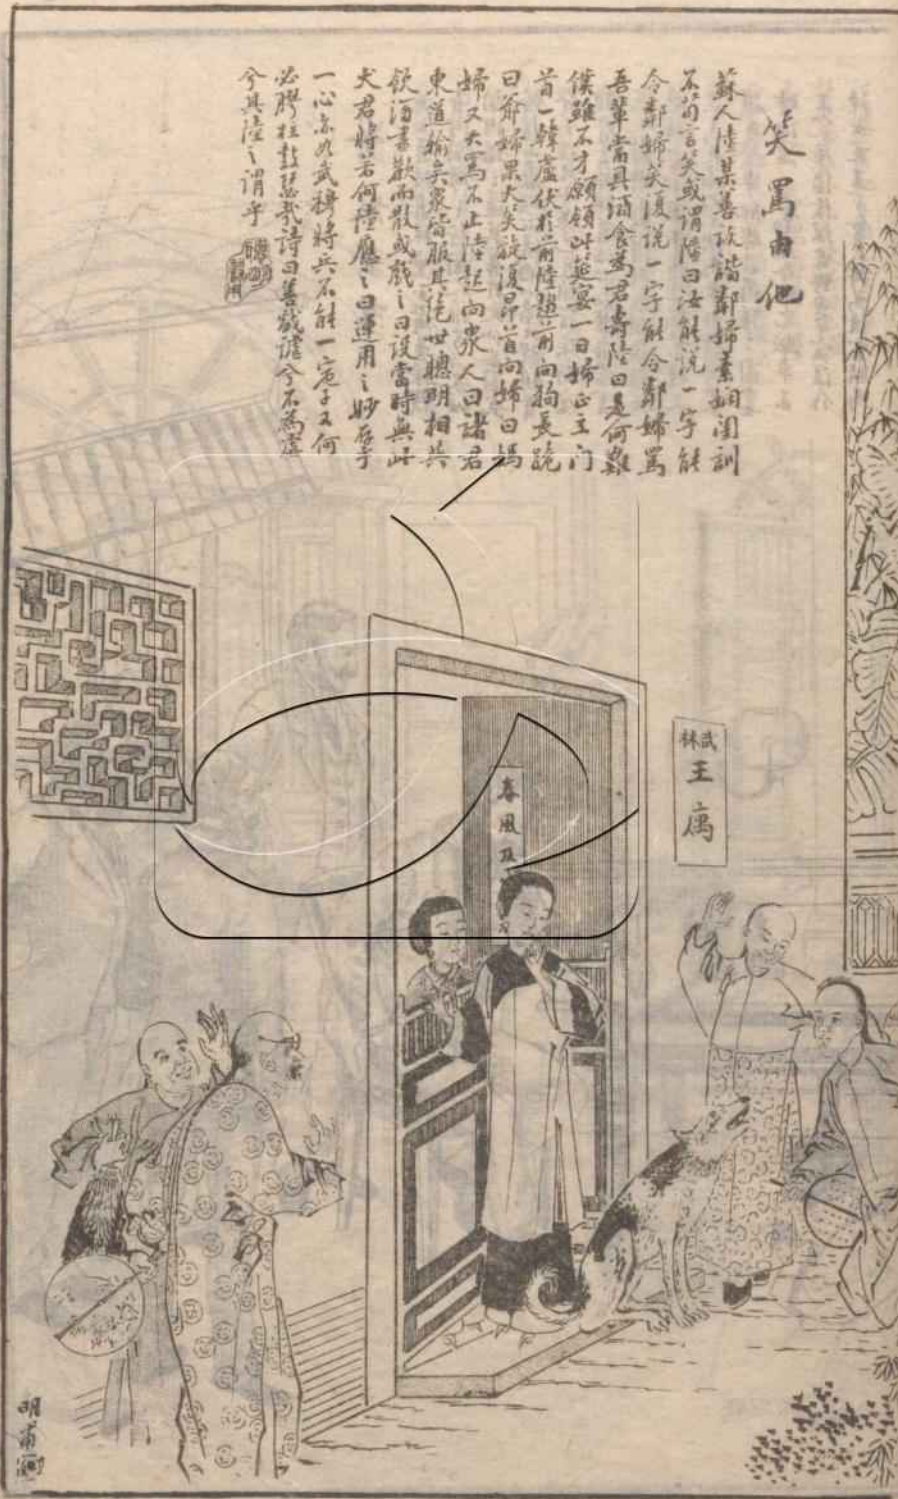 笑罵由他
蘇人陸某善詼諧鄰婦素嫻閨訓
不苟言笑或謂陸曰汝能説一字能
令鄰婦笑復説一字能令鄰婦罵
吾輩當具酒食為君壽陸曰是何難
僕雖不才願領此筵宴一日婦正立门
首一韓盧伏於前陸趨前向狗長跪
曰爺婦果大笑旋復昂首向婦曰媽
婦又大罵不止陸起向衆人曰諸君
東道輸矣衆皆服其絶世聰明相共
飲酒盡歡而散或戲之曰設當時無此
犬君將若何陸應之曰運用之妙存乎
一心亦如武穆將兵不能一定子又何
必膠柱鼓瑟哉詩曰善戲謔兮不為虐
兮其陸之謂乎
武林
王寓
春風
明甫